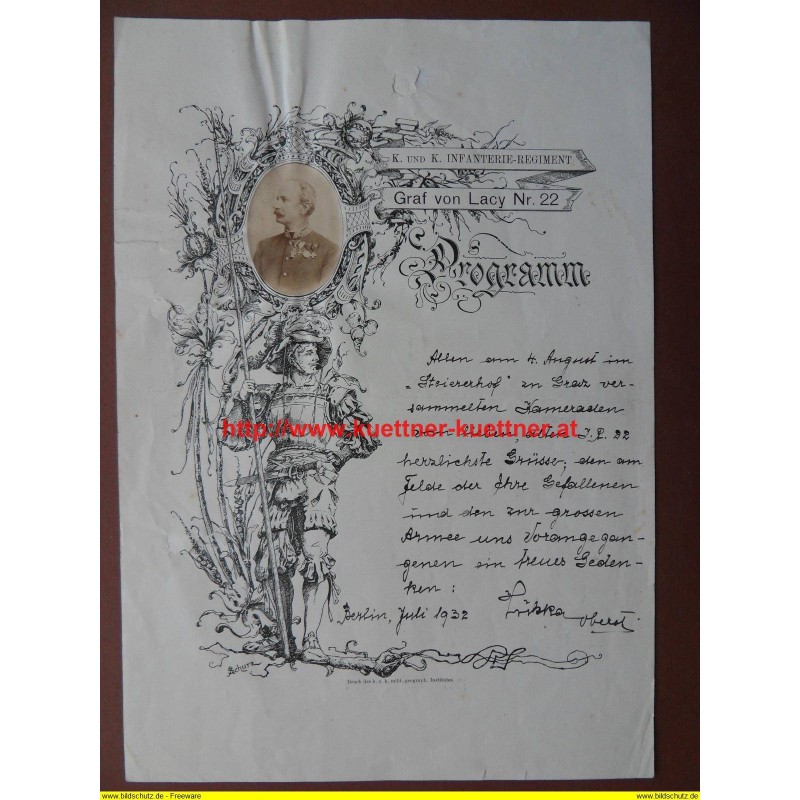 K. UND K. INFANTERIE-REGIMENT
Graf von Lacy Nr. 22
Programm
Allen am 4. August im
„Steiererhof" zu Graz ver-
sammelten Kameraden
http://www.kuettner-kuettner.at
vom lieben, alten I.R. 22
herzlichste Grüsse; den am
Felde der Ehre Gefallenen
und den zur grossen
Armee uns Vorangegan-
genen ein treues Geden-
ken:
Berlin, Juli 1932
Oberst.
Schurz
Druck des k. u. k. milit.-geograph. Institutes
www.bildschutz.de - Freeware
www.bildschutz.de